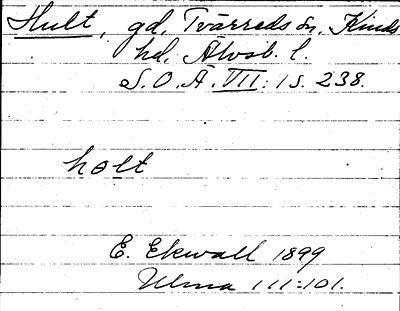 Hult, gd, Tvärreds sn, Kinds
hd, Älvsb. l.
S. O. Ä. VII: 1 s. 238.
holt
E. Ekwall 1899
Ulma 111:101.